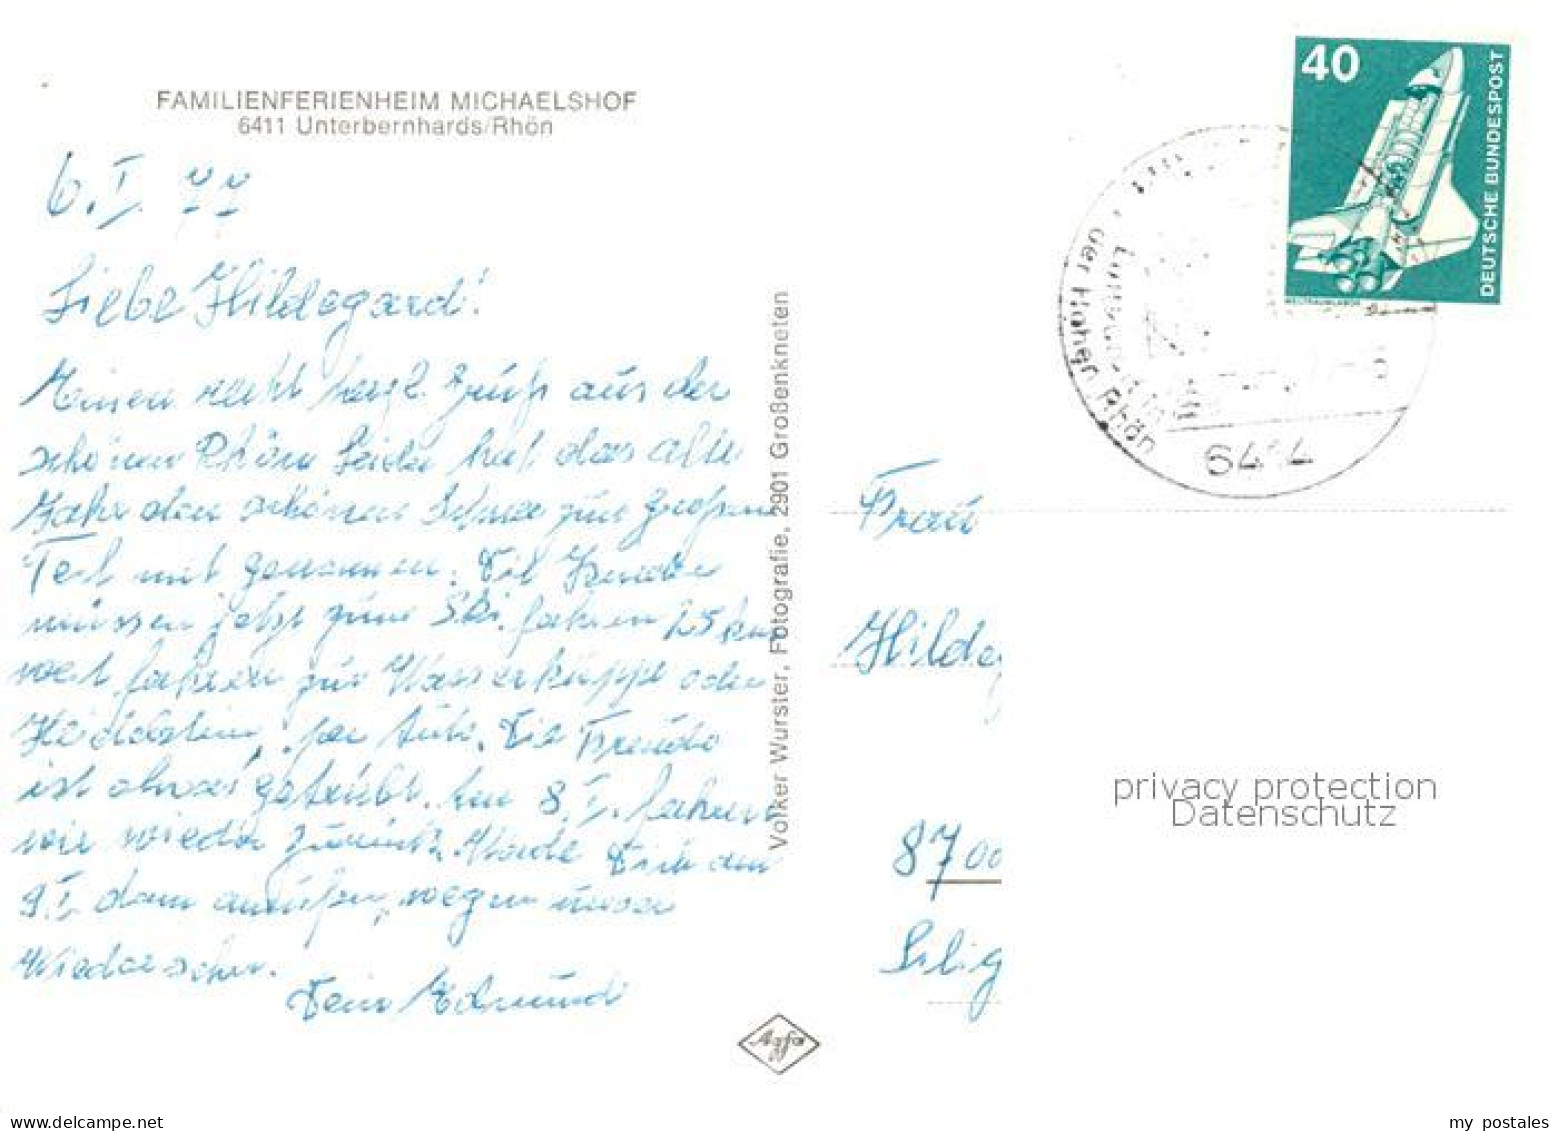 FAMILIENFERIENHEIM MICHAELSHOF
6411 Unterbernhards/Rhön
6. I. 77
Liebe Hildegard!
Meinen recht herzl. Gruß aus der
schönen Rhön Leider hat das alte
Jahr den schönen Schnee zum großen
Teil mit genommen. Die Kinder
müssen jetzt zum Ski. fahren 25 km
weit fahren zur Wasserkuppe oder
Heidelstein, per Auto. Die Freude
ist etwas getrübt. Am 8. I. fahren
wir wieder zurück. Werde Dich am
9. I. dann anrufen, wegen unser
Wiedersehn.
Dein Edmund
Volker Wurster, Fotografie, 2901 Großenkneten
Agfa
40
DEUTSCHE BUNDESPOST
WELTRAUMLABOR
der Hohen Rhön
6414
Frau
Hildeg
8700
privacy protection
Datenschutz
www.delcampe.net
my_postales